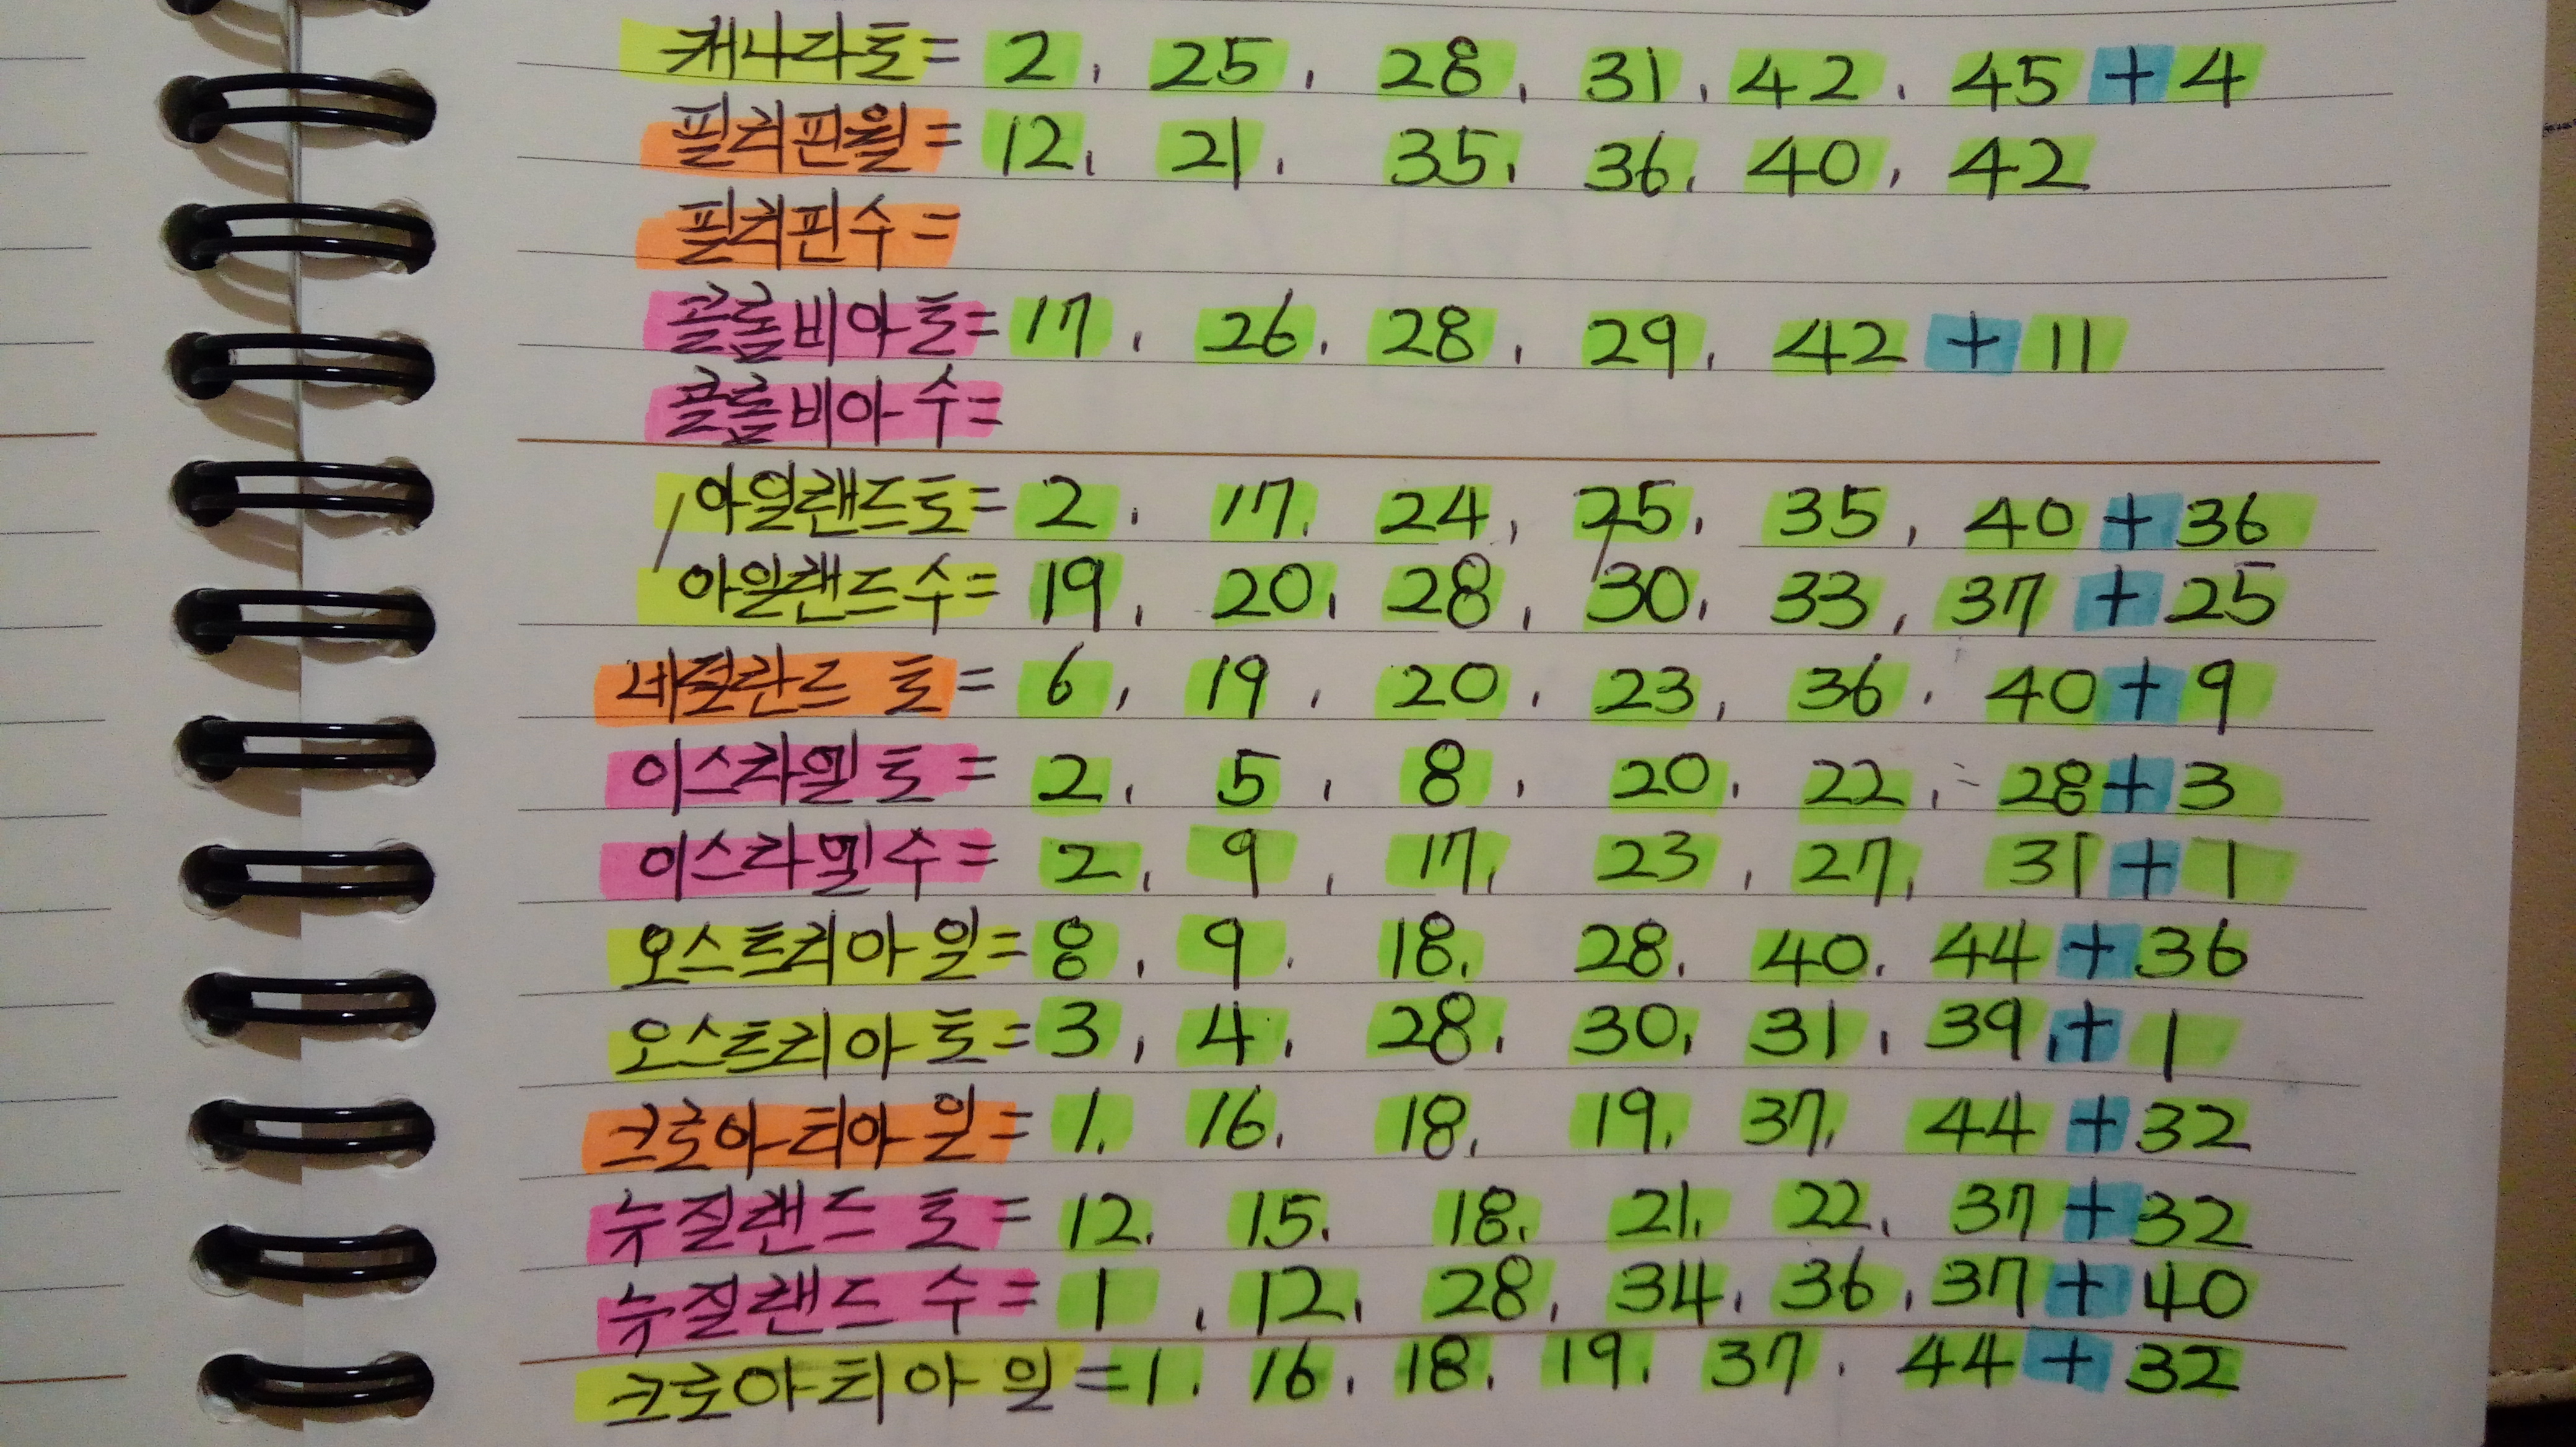 캐나다토= 2, 25, 28, 31, 42, 45 + 4
필리핀월= 12, 21, 35, 36, 40, 42
필리핀수=
콜롬비아토= 17, 26, 28, 29, 42 + 11
콜롬비아수=
아일랜드토= 2, 17, 24, 25, 35, 40 + 36
아일랜드수= 19, 20, 28, 30, 33, 37 + 25
네델란드 토= 6, 19, 20, 23, 36, 40 + 9
이스라엘토= 2, 5, 8, 20, 22, 28 + 3
이스라엘수= 2, 9, 17, 23, 27, 31 + 1
오스트리아일= 8, 9, 18, 28, 40, 44 + 36
오스트리아토= 3, 4, 28, 30, 31, 39, + 1
크로아티아일= 1, 16, 18, 19, 37, 44 + 32
뉴질랜드 토= 12, 15, 18, 21, 22, 37 + 32
뉴질랜드 수= 1, 12, 28, 34, 36, 37 + 40
크로아티아일= 1, 16, 18, 19, 37, 44 + 32